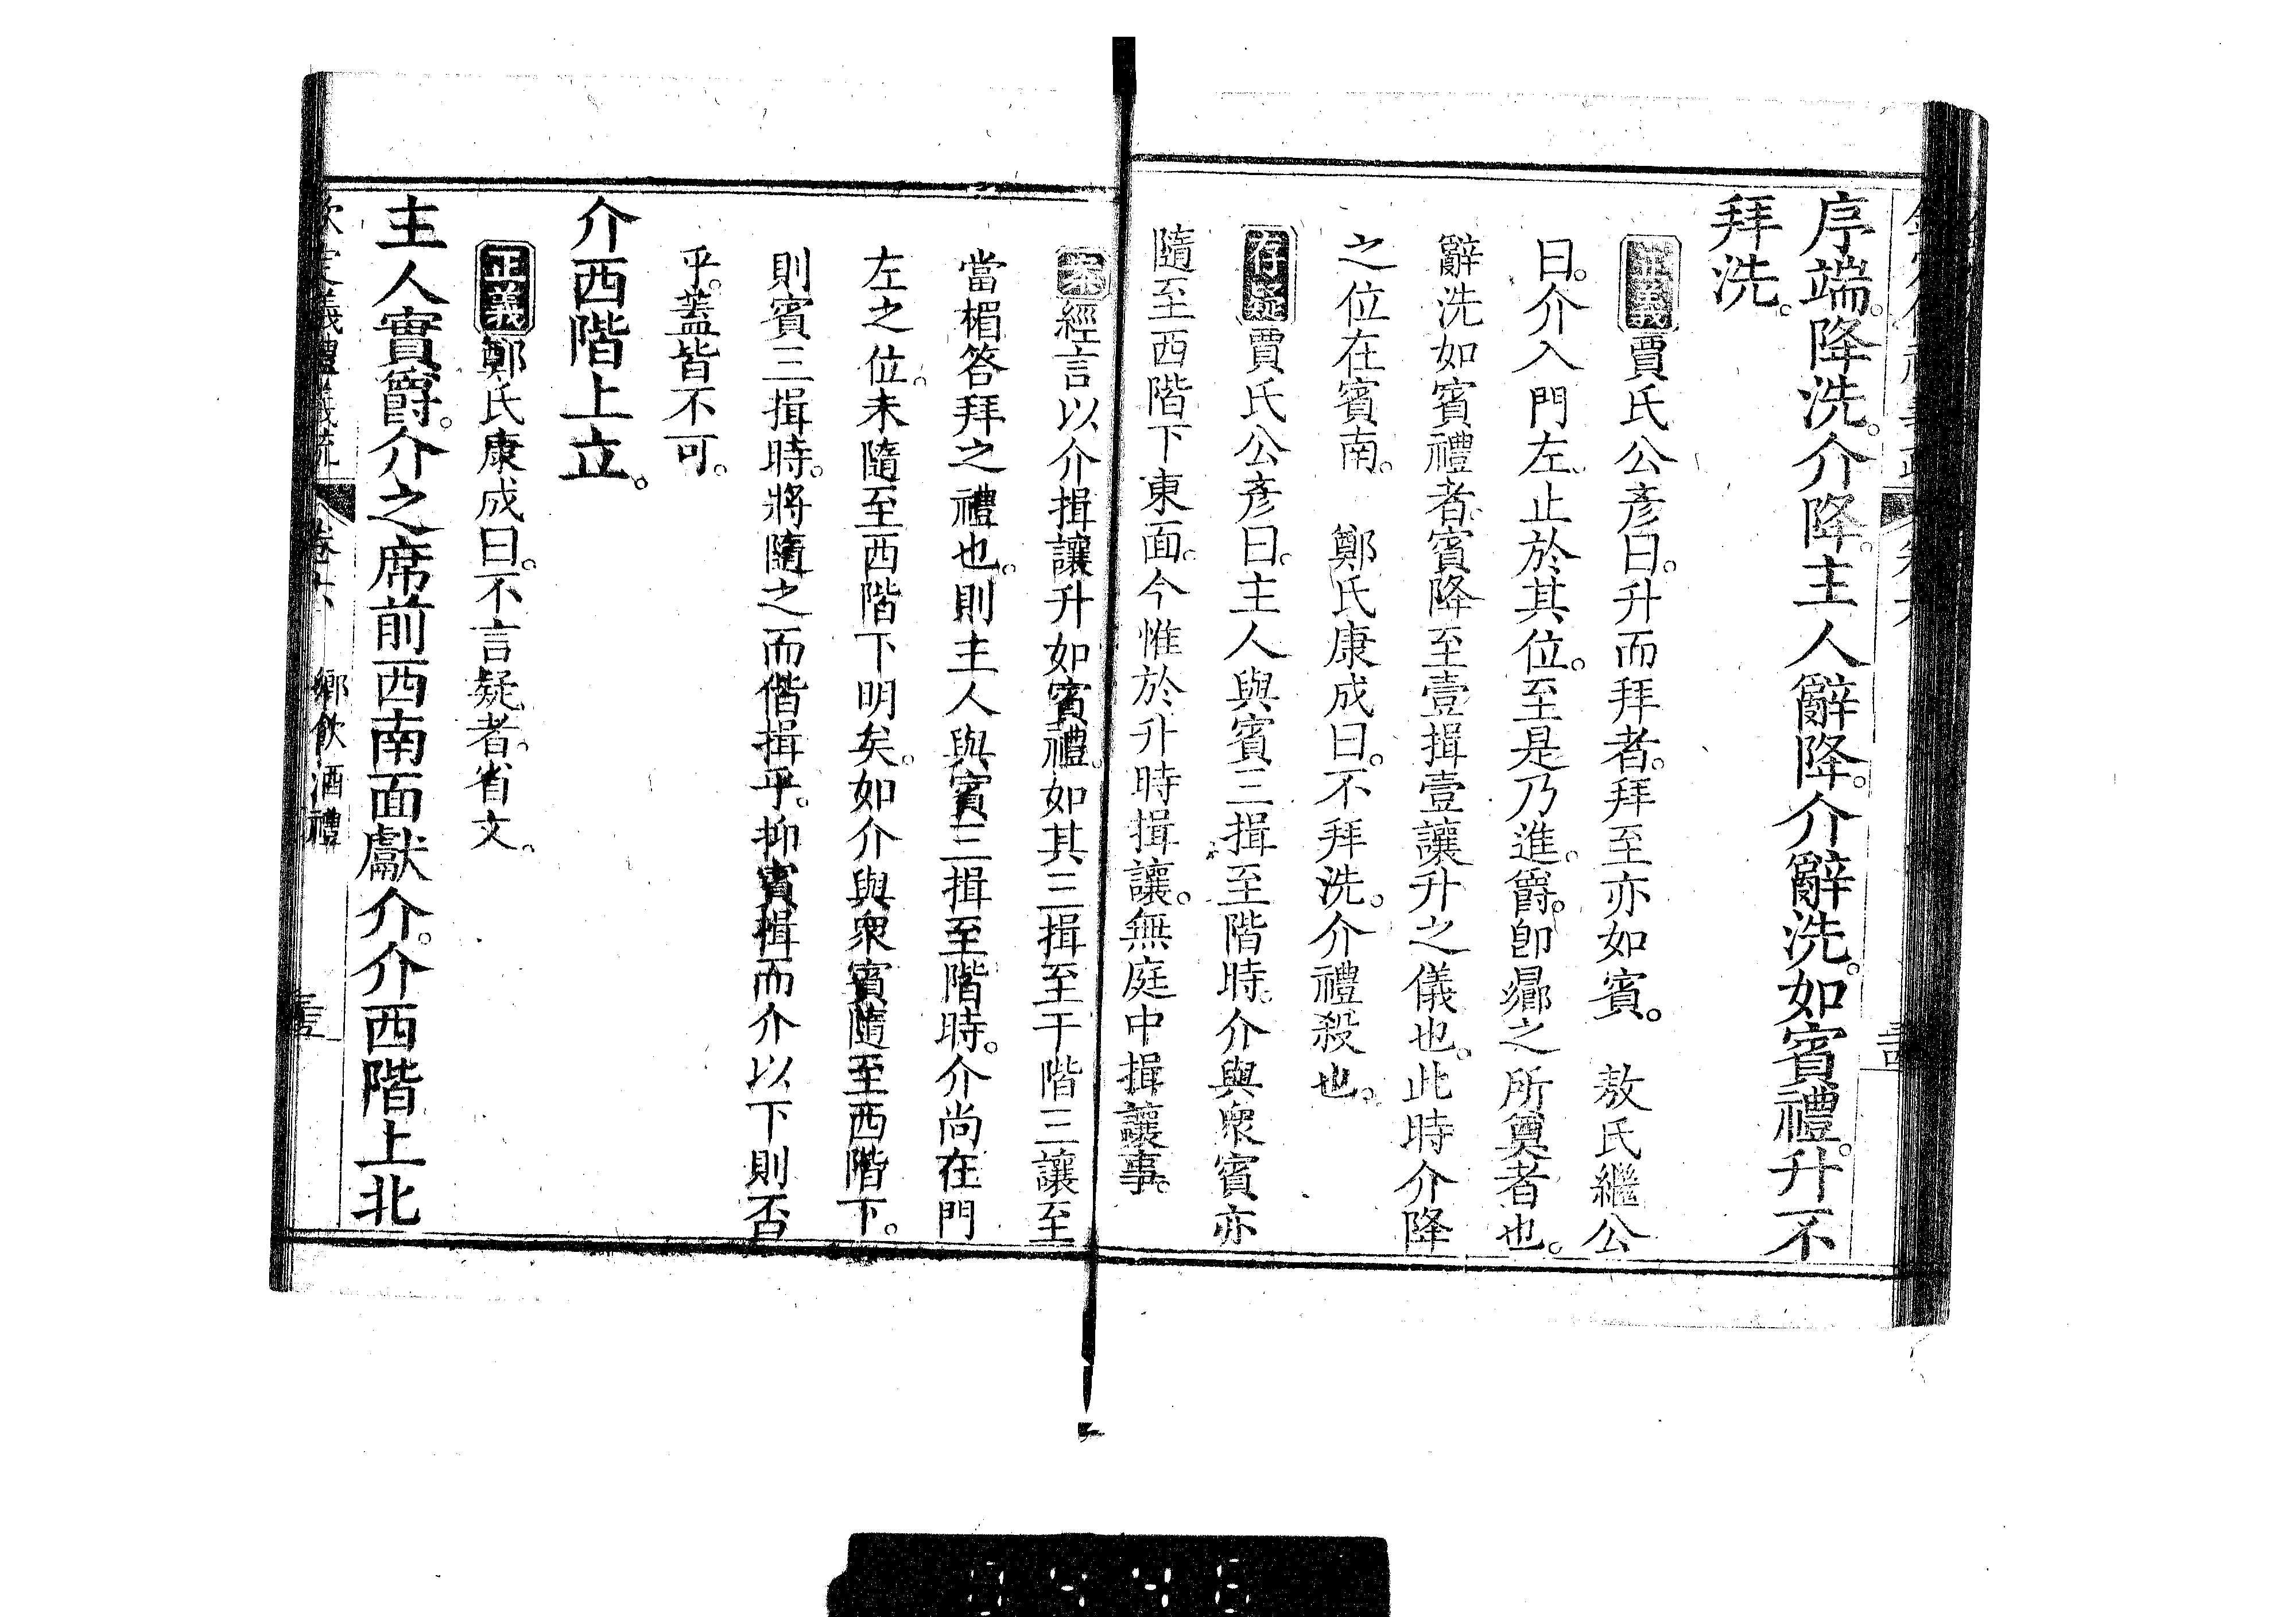 序端。降洗。介降。主人辭降。介辭洗。如賓禮。升不
拜洗。
正義賈氏公彥曰。升而拜者。拜至亦如賓。 敖氏繼公
曰。介入門左。止於其位。至是乃進。爵。卽曏之所奠者也。
辭洗如賓禮者。賓降至壹揖壹讓升之儀也。此時介降
之位在賓南。 鄭氏康成曰。不拜洗。介禮殺也。
存疑賈氏公彥曰。主人與賓三揖至階時。介與衆賓亦
隨至西階下東面。今惟於升時揖讓。無庭中揖讓事。
案經言以介揖讓升如賓禮。如其三揖至于階三讓至
當楣答拜之禮也。則主人與賓三揖至階時。介尚在門
左之位。未隨至西階下明矣。如介與衆賓隨至西階下。
則賓三揖時。將隨之而偕揖乎。抑賓揖而介以下則否
乎。蓋皆不可。
介西階上立。
正義鄭氏康成曰。不言疑者。省文。
主人實爵。介之席前西南面獻介。介西階上北
欽定義禮義疏 卷六 鄉飲酒禮